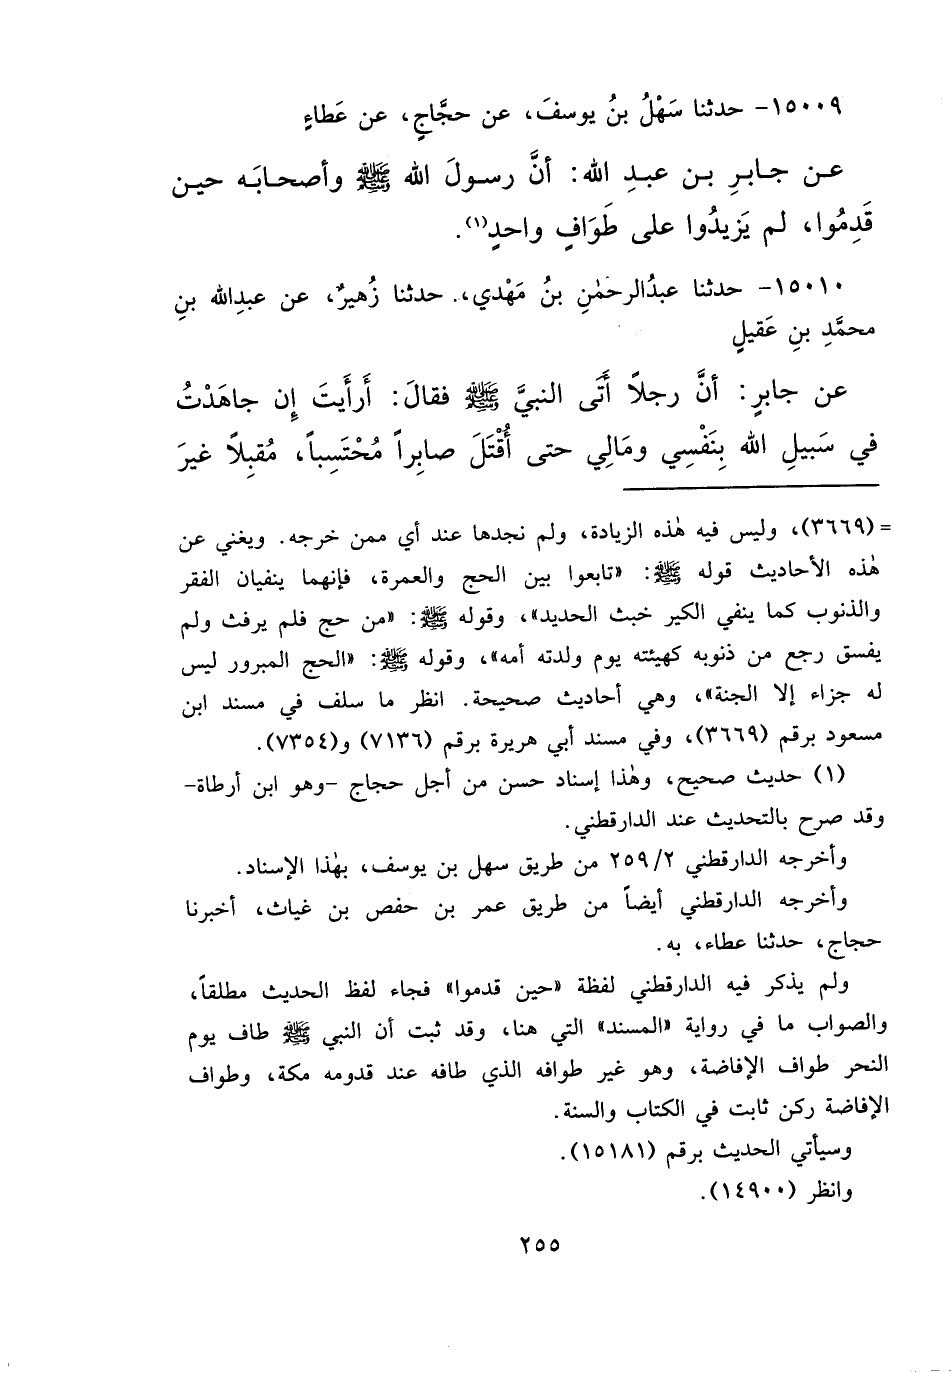 ١٥٠٠٩- حدثنا سَهْلُ بنُ يوسفَ، عن حجَّاجٍ، عن عَطاءٍ
عـن جـابـرِ بـن عبـدِ الله: أنَّ رسـولَ الله ﷺ وأصحـابَـه حيـن
قَدِمُوا، لم يَزيدُوا على طَوَافٍ واحدٍ(١).
١٥٠١٠- حدثنا عبدُالرحمٰنِ بنُ مَهْدي، حدثنا زُهيرٌ، عن عبدِالله بنِ
محمَّدِ بنِ عَقيلٍ
عن جابرٍ: أنَّ رجلاً أَتَى النبيَّ ﷺ فقالَ: أَرأَيتَ إِن جاهَدْتُ
في سَبيلِ الله بِنَفْسِي ومَالِي حتى أُقْتَلَ صابِراً مُحْتَسِباً، مُقبِلاً غيرَ
= (٣٦٦٩)، وليس فيه هٰذه الزيادة، ولم نجدها عند أي ممن خرجه. ويغني عن
هٰذه الأحاديث قوله ﷺ: «تابعوا بين الحج والعمرة، فإنهما ينفيان الفقر
والذنوب كما ينفي الكير خبث الحديد»، وقوله ﷺ: «من حج فلم يرفث ولم
يفسق رجع من ذنوبه كهيئته يوم ولدته أمه»، وقوله ﷺ: «الحج المبرور ليس
له جزاء إلا الجنة»، وهي أحاديث صحيحة. انظر ما سلف في مسند ابن
مسعود برقم (٣٦٦٩)، وفي مسند أبي هريرة برقم (٧١٣٦) و(٧٣٥٤).
(١) حديث صحيح، وهٰذا إسناد حسن من أجل حجاج -وهو ابن أرطاة-
وقد صرح بالتحديث عند الدارقطني.
وأخرجه الدارقطني ٢/ ٢٥٩ من طريق سهل بن يوسف، بهٰذا الإسناد.
وأخرجه الدارقطني أيضاً من طريق عمر بن حفص بن غياث، أخبرنا
حجاج، حدثنا عطاء، به.
ولم يذكر فيه الدارقطني لفظة «حين قدموا» فجاء لفظ الحديث مطلقاً،
والصواب ما في رواية «المسند» التي هنا، وقد ثبت أن النبي ﷺ طاف يوم
النحر طواف الإفاضة، وهو غير طوافه الذي طافه عند قدومه مكة، وطواف
الإفاضة ركن ثابت في الكتاب والسنة.
وسيأتي الحديث برقم (١٥١٨١).
وانظر (١٤٩٠٠).
٢٥٥